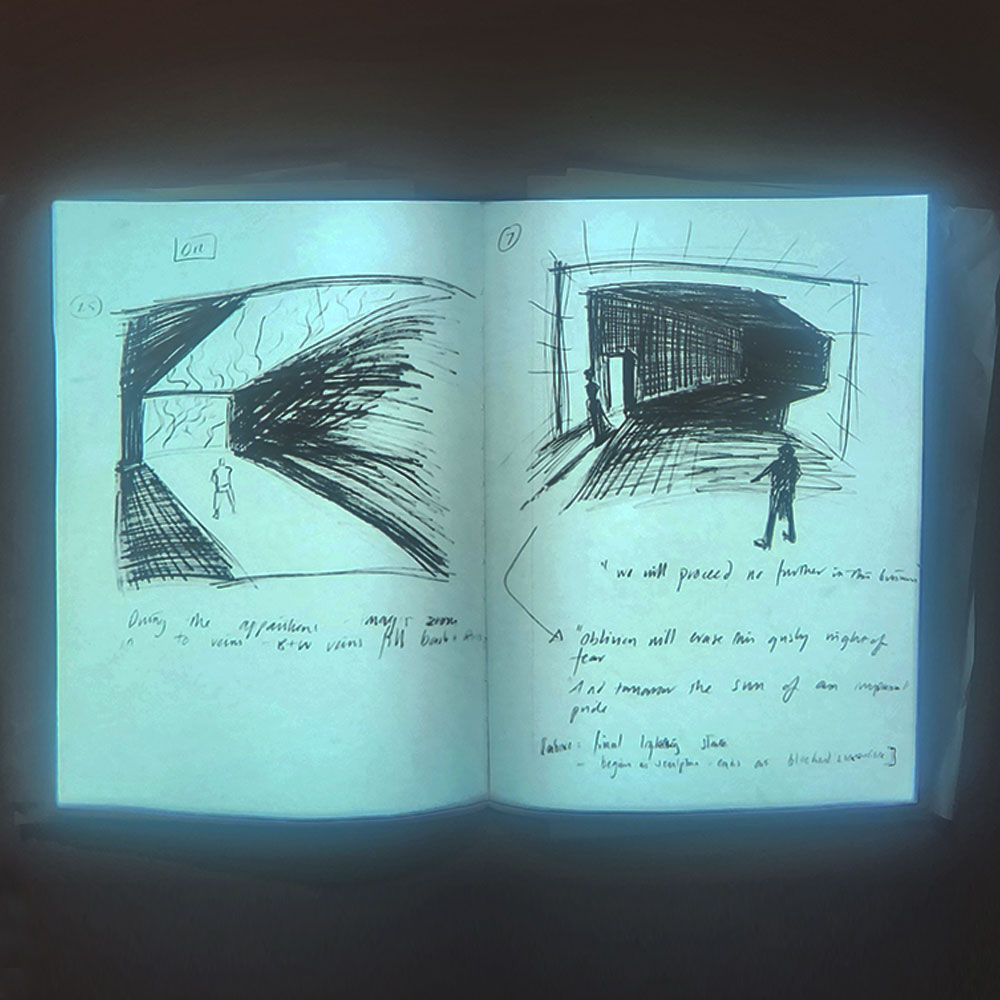 On
During the apparitions zoom
in to veins - B+W veins fill back +
7
"we will proceed no further in this business
"Oblivion will erase this gusty night of
fear
And tomorrow the sun of an imperial
pride
final lighting state
- begins as sculpture - ends as bleached